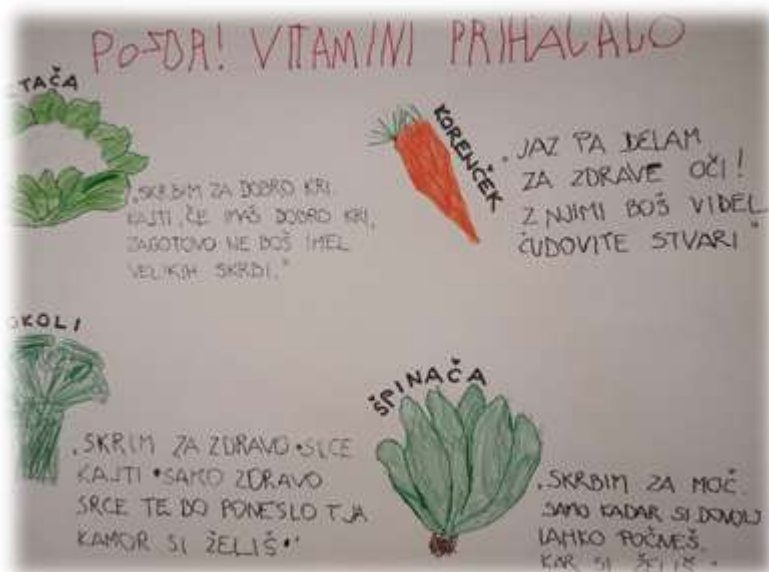 POZDR! VITAMINI PRIHAJAJO
TAČA
„SKRBIM ZA DOBRO KRI
KAJTI, ČE IMAŠ DOBRO KRI,
ZAGOTOVO NE BOŠ IMEL
VELIKIH SKRBI."
KORENČEK
„JAZ PA DELAM
ZA ZDRAVE OČI!
Z NJIMI BOŠ VIDEL
ČUDOVITE STVARI"
OKOLI
„SKRIM ZA ZDRAVO SRCE
KAJTI SAMO ZDRAVO
SRCE TE BO PONESLO TJA
KAMOR SI ŽELIŠ"
ŠPINAČA
„SKRBIM ZA MOČ.
SAMO KADAR SI DOVOLJ
LAHKO POČNEŠ
KAR SI ŽELIŠ